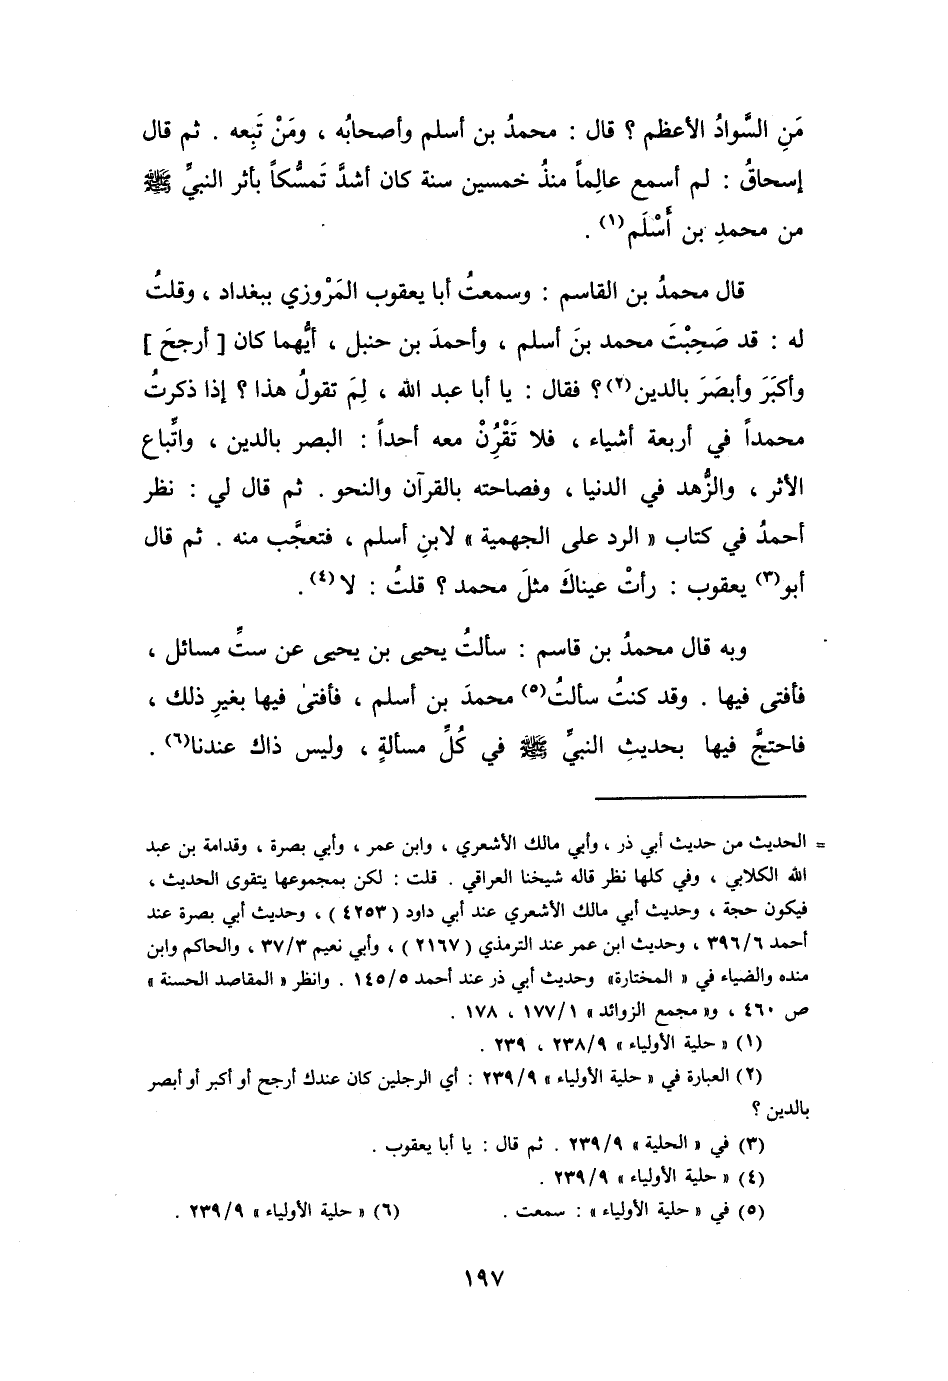 مَنِ السَّوادُ الأعظم ؟ قال : محمدُ بن أسلم وأصحابُه ، ومَنْ تَبِعه . ثم قال
إسحاقُ : لم أسمع عالِماً منذُ خمسين سنة كان أشدَّ تَمسُّكاً بأثر النبيِّ ﷺ
من محمدِ بن أَسْلَم(١) .
قال محمدُ بن القاسم : وسمعتُ أبا يعقوب المَرْوزي ببغداد ، وقلتُ
له : قد صَحِبْتَ محمد بنَ أسلم ، وأحمدَ بن حنبل ، أيُّهما كان [ أرجحَ ]
وأكبَرَ وأبصَرَ بالدين(٢)؟ فقال : يا أبا عبد الله ، لِمَ تقولُ هذا ؟ إذا ذكرتُ
محمداً في أربعة أشياء ، فلا تَقْرِنْ معه أحداً : البصر بالدين ، واتِّباع
الأثر ، والزُّهد في الدنيا ، وفصاحته بالقرآن والنحو . ثم قال لي : نظر
أحمدُ في كتاب « الرد على الجهمية » لابنِ أسلم ، فتعجَّب منه . ثم قال
أبو(٣) يعقوب : رأتْ عيناكَ مثلَ محمد ؟ قلتُ : لا(٤) .
وبه قال محمدُ بن قاسم : سألتُ يحيى بن يحيى عن ستِّ مسائل ،
فأفتى فيها . وقد كنتُ سألتُ(٥) محمدَ بن أسلم ، فأفتىٰ فيها بغيرِ ذلك ،
فاحتجَّ فيها بحديثِ النبيِّ ﷺ في كُلِّ مسألةٍ ، وليس ذاك عندنا(٦) .
= الحديث من حديث أبي ذر ، وأبي مالك الأشعري ، وابن عمر ، وأبي بصرة ، وقدامة بن عبد
الله الكلابي ، وفي كلها نظر قاله شيخنا العراقي . قلت : لكن بمجموعها يتقوى الحديث ،
فيكون حجة ، وحديث أبي مالك الأشعري عند أبي داود ( ٤٢٥٣ ) ، وحديث أبي بصرة عند
أحمد ٣٩٦/٦ ، وحديث ابن عمر عند الترمذي ( ٢١٦٧ ) ، وأبي نعيم ٣٧/٣ ، والحاكم وابن
منده والضياء في « المختارة» وحديث أبي ذر عند أحمد ١٤٥/٥ . وانظر « المقاصد الحسنة »
ص ٤٦٠ ، و« مجمع الزوائد » ١٧٧/١ ، ١٧٨ .
(١) « حلية الأولياء » ٢٣٨/٩ ، ٢٣٩ .
(٢) العبارة في « حلية الأولياء » ٢٣٩/٩ : أي الرجلين كان عندك أرجح أو أكبر أو أبصر
بالدين ؟
(٣) في « الحلية » ٢٣٩/٩ . ثم قال : يا أبا يعقوب .
(٤) « حلية الأولياء » ٢٣٩/٩ .
(٥) في « حلية الأولياء » : سمعت . (٦) « حلية الأولياء » ٢٣٩/٩ .
١٩٧